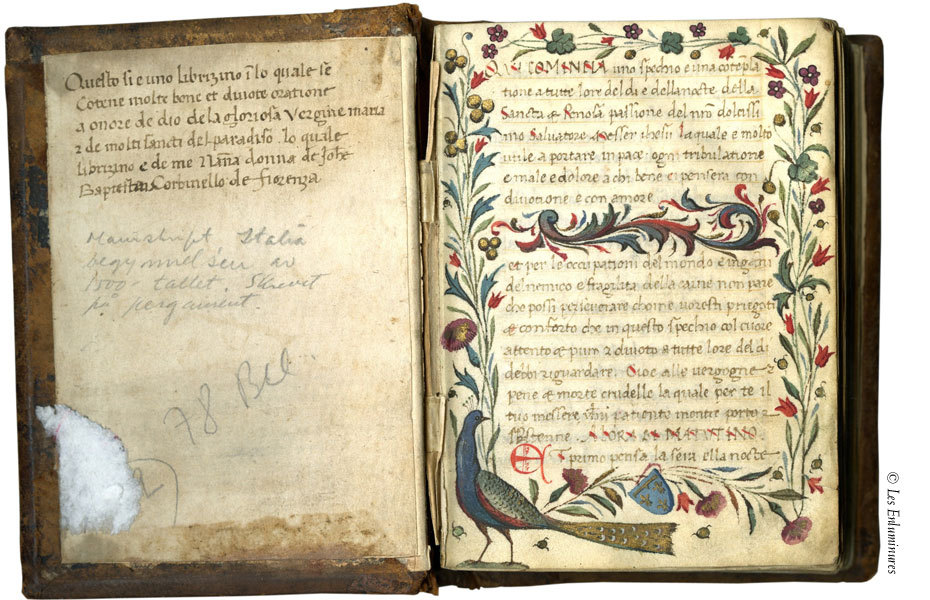 Questo si e uno librizino i lo quale se
Cotene molte bone et diuote oratione
a onore de dio de la gloriosa Vergine maria
z de molti sancti del paradiso lo quale
librizino e de me Nana donna de Johe
Baptesta Corbinello de fiorenza
Manuskript, Italia
begynnelsen av
1500-tallet. Skrevet
på pergament.
78 Bll.
QVI COMINCIA uno spechio e una cotepla
tione a tutte lore del di e della nocte della
Sancta & Penosa passione del nro dolcissi
mo Saluatore Messer ihesu la quale e molto
utile a portare in pace ogni tribulatione
e male e dolore a chi bene ci pensera con
diuotione e con amore
et per le occupationi del mondo e ingani
del nemico e fragilita della carne non pare
che possi perseuerare choi uoresti pregoti
& conforto che in questo spechio col cuore
attento & puro z diuoto a tutte lore del di
debbi riguardare. Cioe alle uergogne z
pene & morte crudelle la quale per te il
tuo messere patiento mentre porto z
sostenne. ALORA DI MATUTINO.
ET primo pensa la sera ella nocte
© Les Enluminures